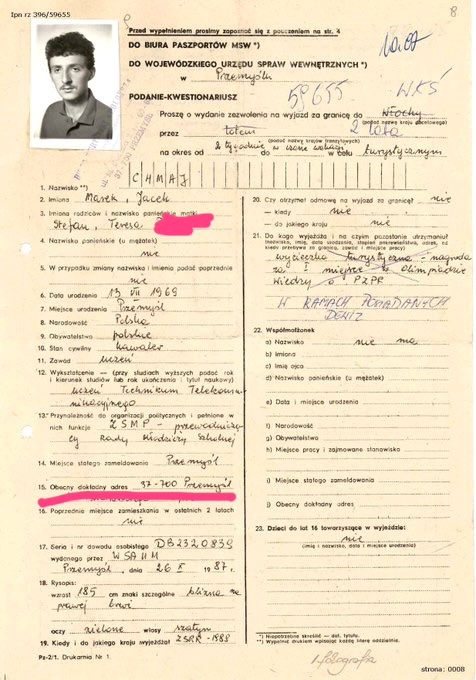 Ipn rz 396/59655
8
Przed wypełnieniem prosimy zapoznać się z pouczeniem na str. 4
DO BIURA PASZPORTÓW MSW *)
DO WOJEWÓDZKIEGO URZĘDU SPRAW WEWNĘTRZNYCH *)
w Przemyślu
PODANIE-KWESTIONARIUSZ
59655
WKŚ
Proszę o wydanie zezwolenia na wyjazd za granicę do Włochy
(podać nazwę kraju docelowego)
przez 2 lata
(podać nazwę krajów tranzytowych)
na okres od 2 tygodnie w czasie wakacji w celu turystycznym
1. Nazwisko **) CHMAJ
2. Imiona Marek, Jacek
3. Imiona rodziców i nazwisko panieńskie matki
Stefan, Teresa
4. Nazwisko panieńskie (u mężatek)
nie
5. W przypadku zmiany nazwiska i imienia podać poprzednie
nie
6. Data urodzenia 13 VII 1969
7. Miejsce urodzenia Przemyśl
8. Narodowość Polska
9. Obywatelstwo polskie
10. Stan cywilny kawaler
11. Zawód uczeń
12. Wykształcenie - (przy studiach wyższych podać rok
i kierunek studiów lub rok ukończenia i tytuł naukowy)
uczeń Technikum Telekomu-
nikacyjnego
13. Przynależność do organizacji politycznych i pełnione w
nich funkcje ZSMP - przewodniczą-
cy Rady Młodzieży Szkolnej
14. Miejsce stałego zameldowania Przemyśl
15. Obecny dokładny adres 37-700 Przemyśl
16. Poprzednie miejsce zamieszkania w ostatnich 2 latach
nie
17. Seria i nr dowodu osobistego DB2320839
wydanego przez WSAIIM
Przemyśl, dnia 26 X 1987 r.
18. Rysopis:
wzrost 185 cm znaki szczególne blizna na
prawej brwi
oczy zielone włosy szatyn
19. Kiedy i do jakiego kraju wyjeżdżał ZSRR-1988
Pz-2/1. Drukarnia Nr 1.
20. Czy otrzymał odmowę na wyjazd za granicę? nie
- kiedy nie
- do jakiego kraju nie
21. Do kogo wyjeżdża i na czyim pozostanie utrzymaniu?
wycieczka turystyczna - nagroda
za I miejsce w Olimpiadzie
Wiedzy o PZPR
W RAMACH POSIADANYCH
DEWIZ
22. Współmałżonek
a) Nazwisko nie ma
b) Imiona
c) Imię ojca
d) Nazwisko panieńskie (u mężatek)
e) Data i miejsce urodzenia
f) Narodowość
g) Obywatelstwo
h) Miejsce pracy i zajmowane stanowisko
i) Miejsce stałego zameldowania
j) Obecny dokładny adres
23. Dzieci do lat 16 towarzyszące w wyjeździe:
nie
(imię i nazwisko, data i miejsce urodzenia)
*) Niepotrzebne skreślić
**) Wypełnić drukiem wpisując każdą literę oddzielnie.
1 fotografia
strona: 0008